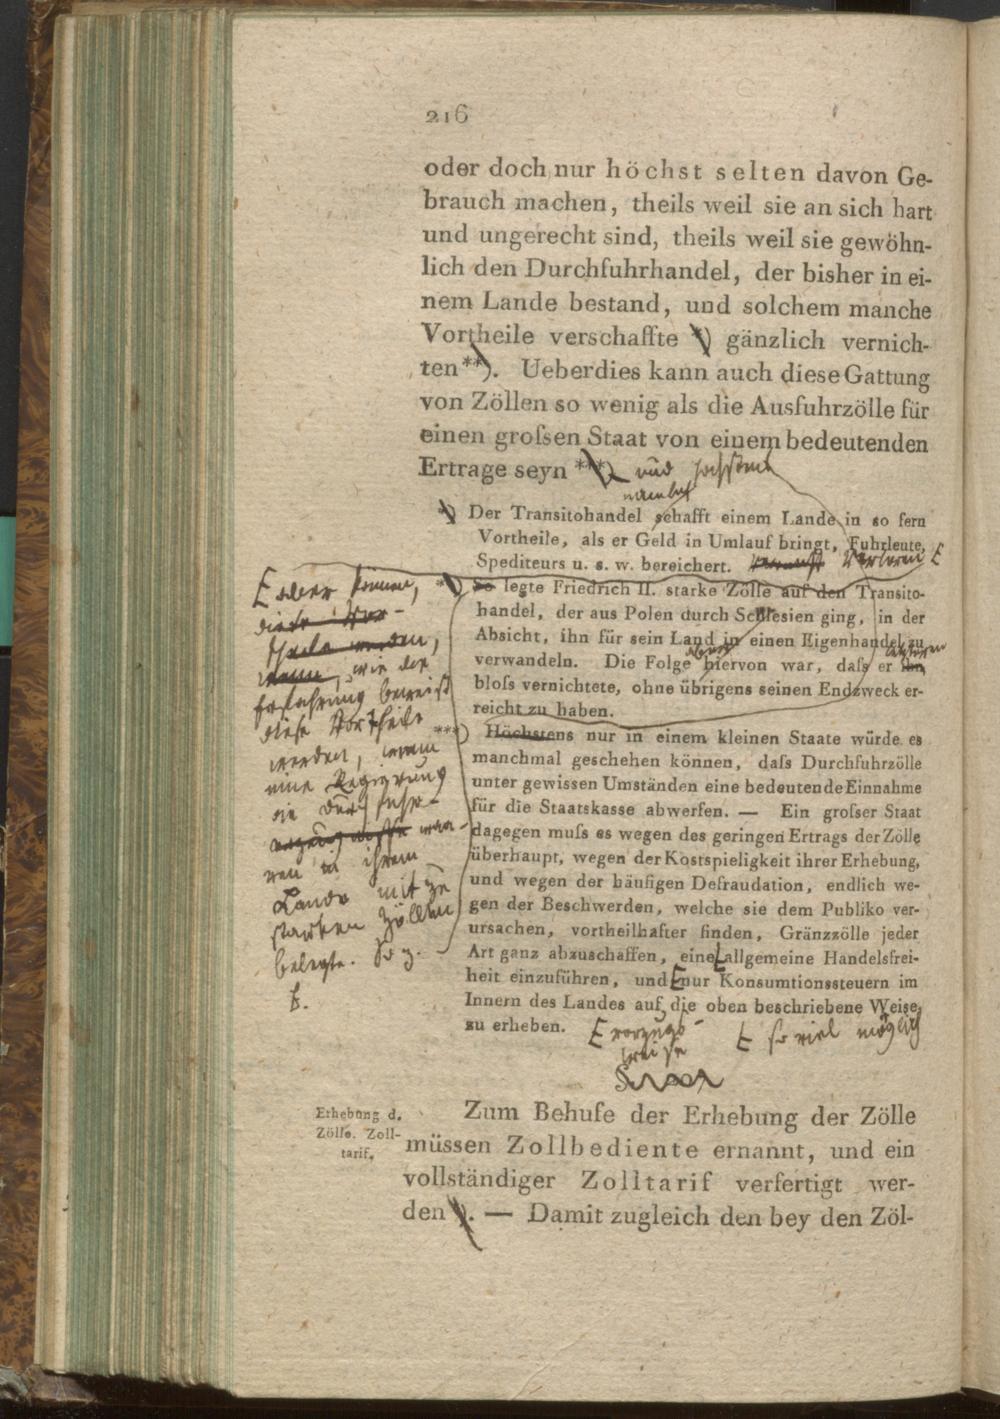 216
oder doch nur höchst selten davon Ge-
brauch machen, theils weil sie an sich hart
und ungerecht sind, theils weil sie gewöhn-
lich den Durchfuhrhandel, der bisher in ei-
nem Lande bestand, und solchem manche
Vortheile verschaffte *) gänzlich vernich-
ten**). Ueberdies kann auch diese Gattung
von Zöllen so wenig als die Ausfuhrzölle für
einen grofsen Staat von einem bedeutenden
Ertrage seyn ***) und höchstens
*) Der Transitohandel schafft einem Lande in so fern
Vortheile, als er Geld in Umlauf bringt, Fuhrleute,
Spediteurs u. s. w. bereichert. verloren
**) So legte Friedrich II. starke Zölle auf den Transito-
handel, der aus Polen durch Schlesien ging, in der
Absicht, ihn für sein Land in einen Eigenhandel zu
aber
verwandeln. Die Folge hiervon war, dafs er ihn
blofs vernichtete, ohne übrigens seinen Endzweck er-
reicht zu haben.
***) Höchstens nur in einem kleinen Staate würde es
manchmal geschehen können, dafs Durchfuhrzölle
unter gewissen Umständen eine bedeutende Einnahme
für die Staatskasse abwerfen. — Ein grofser Staat
dagegen mufs es wegen des geringen Ertrags der Zölle
überhaupt, wegen der Kostspieligkeit ihrer Erhebung,
und wegen der häufigen Defraudation, endlich we-
gen der Beschwerden, welche sie dem Publiko ver-
ursachen, vortheilhafter finden, Gränzzölle jeder
Art ganz abzuschaffen, eine allgemeine Handelsfrei-
heit einzuführen, und nur Konsumtionssteuern im
Innern des Landes auf die oben beschriebene Weise
zu erheben.
vorzugs-
weise
so viel möglich
aber können,
diese Vor-
theile werden,
wenn, wie die
Erfahrung beweist
diese Vortheile
werden, wenn
eine Regierung
die Durchfuhr-
waa-
ren in ihrem
Lande mit zu
starken Zöllen
belegte. So z.
B.
Erhebung d.
Zölle. Zoll-
tarif.
Zum Behufe der Erhebung der Zölle
müssen Zollbediente ernannt, und ein
vollständiger Zolltarif verfertigt wer-
den *). — Damit zugleich den bey den Zöl-